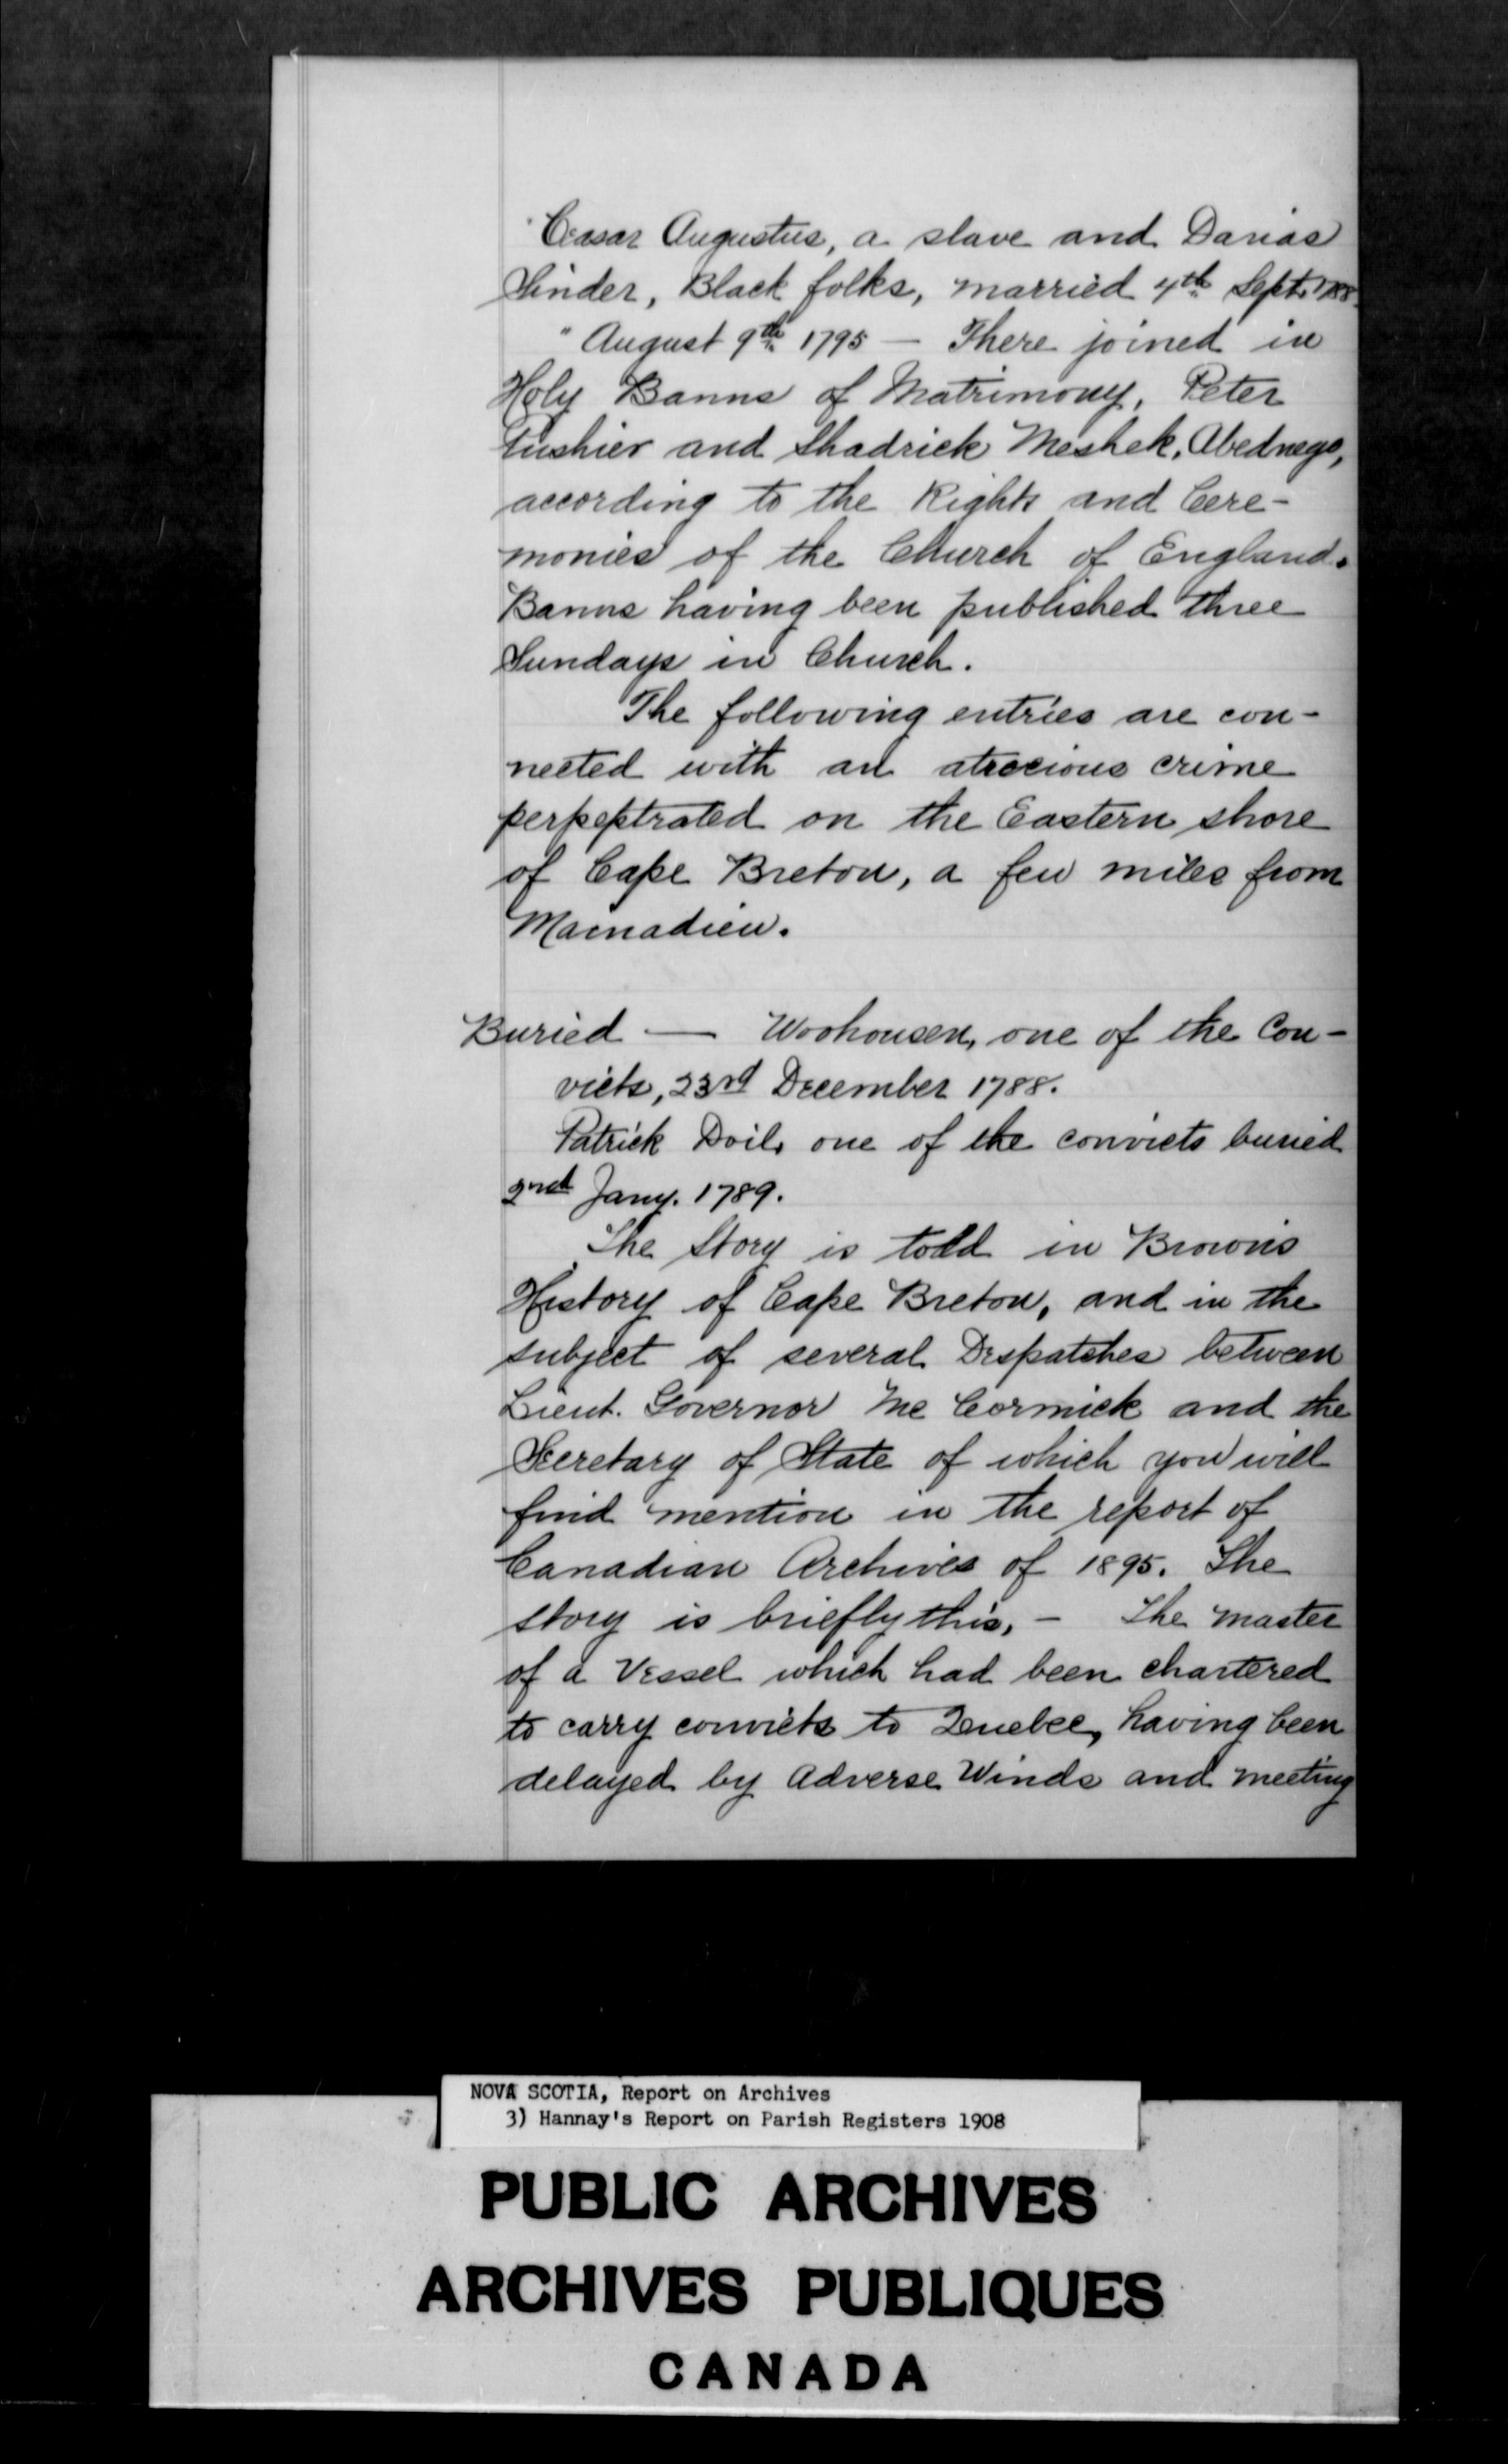 "Ceasar Augustus, a slave and Darias
Sinder, Black folks, married 4th Sept. 1788
" August 9th 1795 — There joined in
Holy Banns of Matrimony, Peter
and Shadrick Meshek, Abednego,
according to the Rights and Cere-
monies of the Church of England.
Banns having been published three
Sundays in Church.
The following entries are con-
nected with an atrocious crime
perpeptrated on the Eastern shore
of Cape Breton, a few miles from
Mainadieu.
Buried — Woohousen, one of the Con-
victs, 23rd December 1788.
Patrick Doil, one of the convicts buried
2nd Jany. 1789.
The Story is told in Brown's
History of Cape Breton, and in the
subject of several Despatches between
Lieut. Governor Mc Cormick and the
Secretary of State of which you will
find mention in the report of
Canadian Archives of 1895. The
story is briefly this, — The master
of a Vessel which had been chartered
to carry convicts to Quebec, having been
delayed by adverse Winds and meeting
NOVA SCOTIA, Report on Archives
3) Hannay's Report on Parish Registers 1908
PUBLIC ARCHIVES
ARCHIVES PUBLIQUES
CANADA